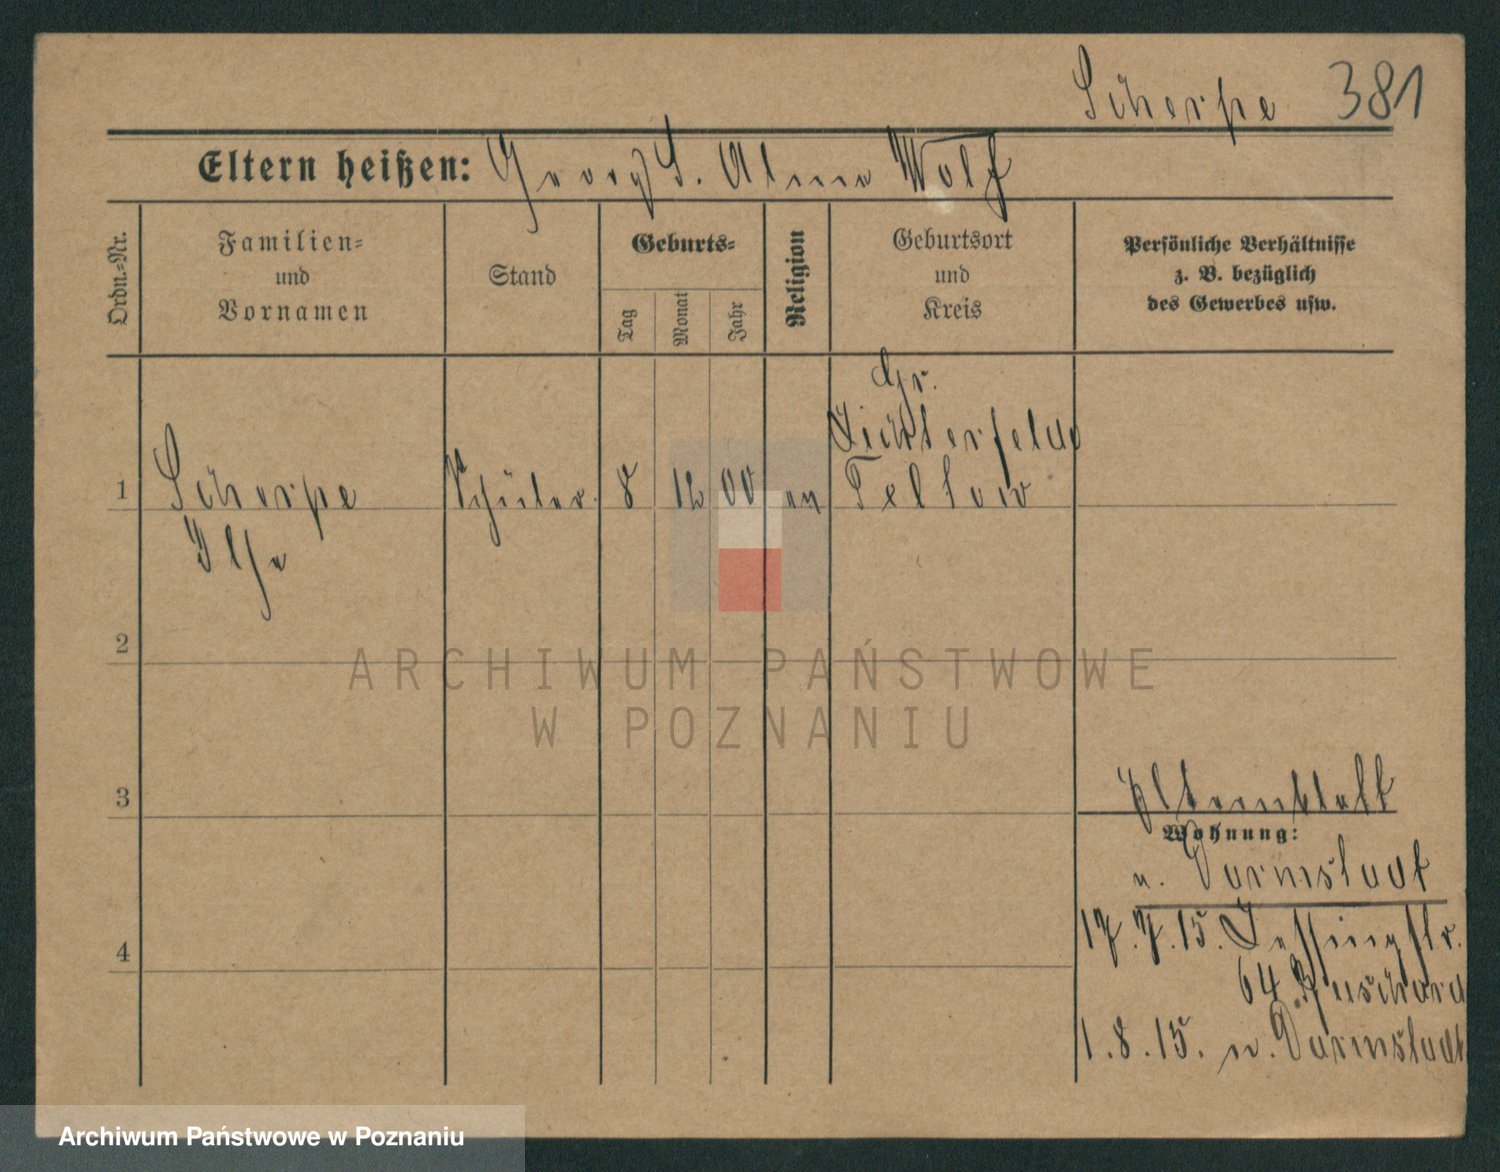 Scherpe 381
Eltern heißen: Georg S. Alma Wolf
Ordn.=Nr.
Familien=
und
Vornamen
Stand
Geburts=
Tag
Monat
Jahr
Religion
Geburtsort
und
Kreis
Persönliche Verhältnisse
z. B. bezüglich
des Gewerbes usw.
Gr.
Lichterfelde
1 Scherpe Schüler. 8 12 00 ev Teltow
Ilse
2
ARCHIWUM PAŃSTWOWE
W POZNANIU
3
Elternblatt
Wohnung:
n. Darmstadt
17.7.15. Lessingstr.
4
64
1.8.15. n. Darmstadt
Archiwum Państwowe w Poznaniu